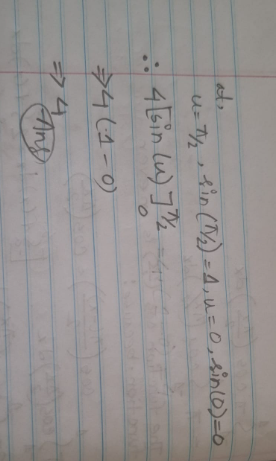 at,
u = π/2, sin(π/2) = 1, u = 0, sin(0) = 0
∴ 4[sin(u)]₀^π/2
⇒ 4(1 - 0)
⇒ 4
Ans